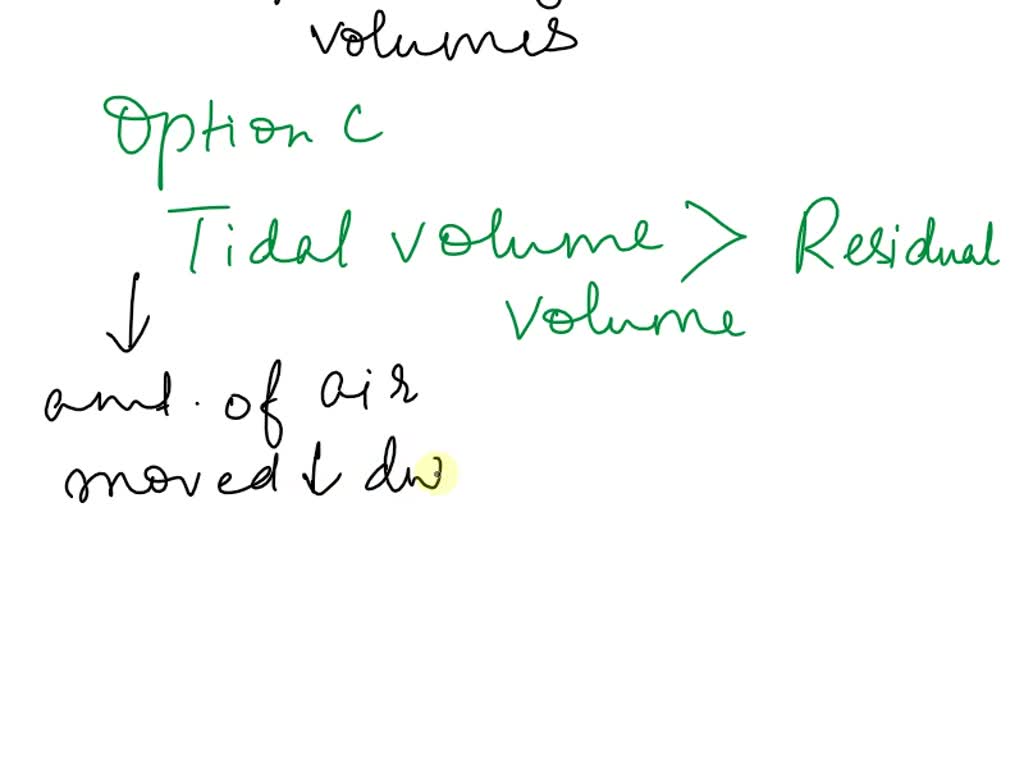 volumes
Option C
Tidal volume > Residual
volume
↓
amt. of air
moved ↓